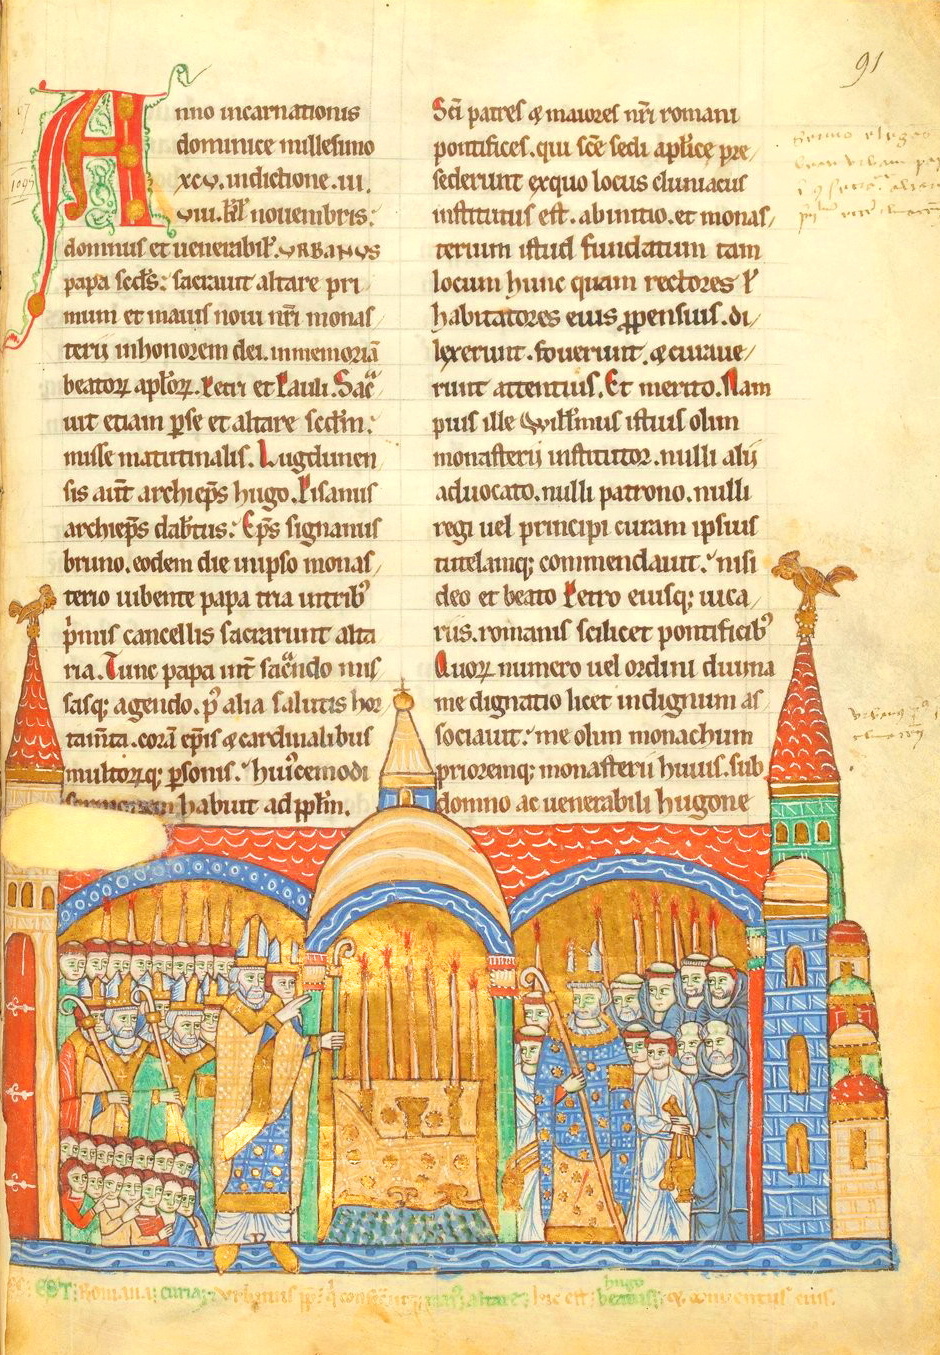 91
Anno incarnationis
dominice millesimo
xcv. indictione .iii.
viii. kl' novembris.
domnus et uenerabil'. URBANUS
papa scds: sacrauit altare pri
mum et maius noui nr̃i monas/
terii inhonorem dei. inmemoriã
beatoꝝ apl'oꝝ. Petri et Pauli. Sac̃
uit etiam ꝑse et altare scdm̃.
misse matutinalis. Lugdunen
sis aut̃ archiep̃s hugo. Pisanus
archiep̃s dab̃tus. Ep̃s signanus
bruno. eodem die in ipso monas/
terio iubente papa tria in trib⁹
p̃mis cancellis sacrarunt alta
ria. Tunc papa int̃ sac̃ndo mis
sasq; agendo. p⁹ alia salutis hor
tam̃ta. corã ep̃is & cardinalibus
multoꝝq; ꝑsonis. hui⁹cemodi
sermonem habuit ad pp̃lm.
Sc̃i patres & maiores nr̃i romani
pontifices. qui sc̃e sedi apl'ice pre
sederunt exquo locus cluniacus
institutus est. abinitio. et monas/
terium istud fundatum tam
locum hunc quam rectores l'
habitatores eius ꝓpensius. di/
lexerunt. fouerunt. & curaue/
runt attentius. Et merito. Nam
pius ille Will'mus istius olim
monasterii institutor. nulli alii
aduocato. nulli patrono. nulli
regi uel principi curam ipsius
tutelamq; commendauit. nisi
deo et beato Petro eiusq; uica/
riis. romanis scilicet pontificib⁹
Quoꝝ numero uel ordini diuina
me dignatio licet indignum as/
sociauit. me olim monachum
prioremq; monasterii huius. sub
domno ac uenerabili hugone
hugo
EST: Romana: curia; urbanus pp̃: altare; hic est: & conuentus eius.